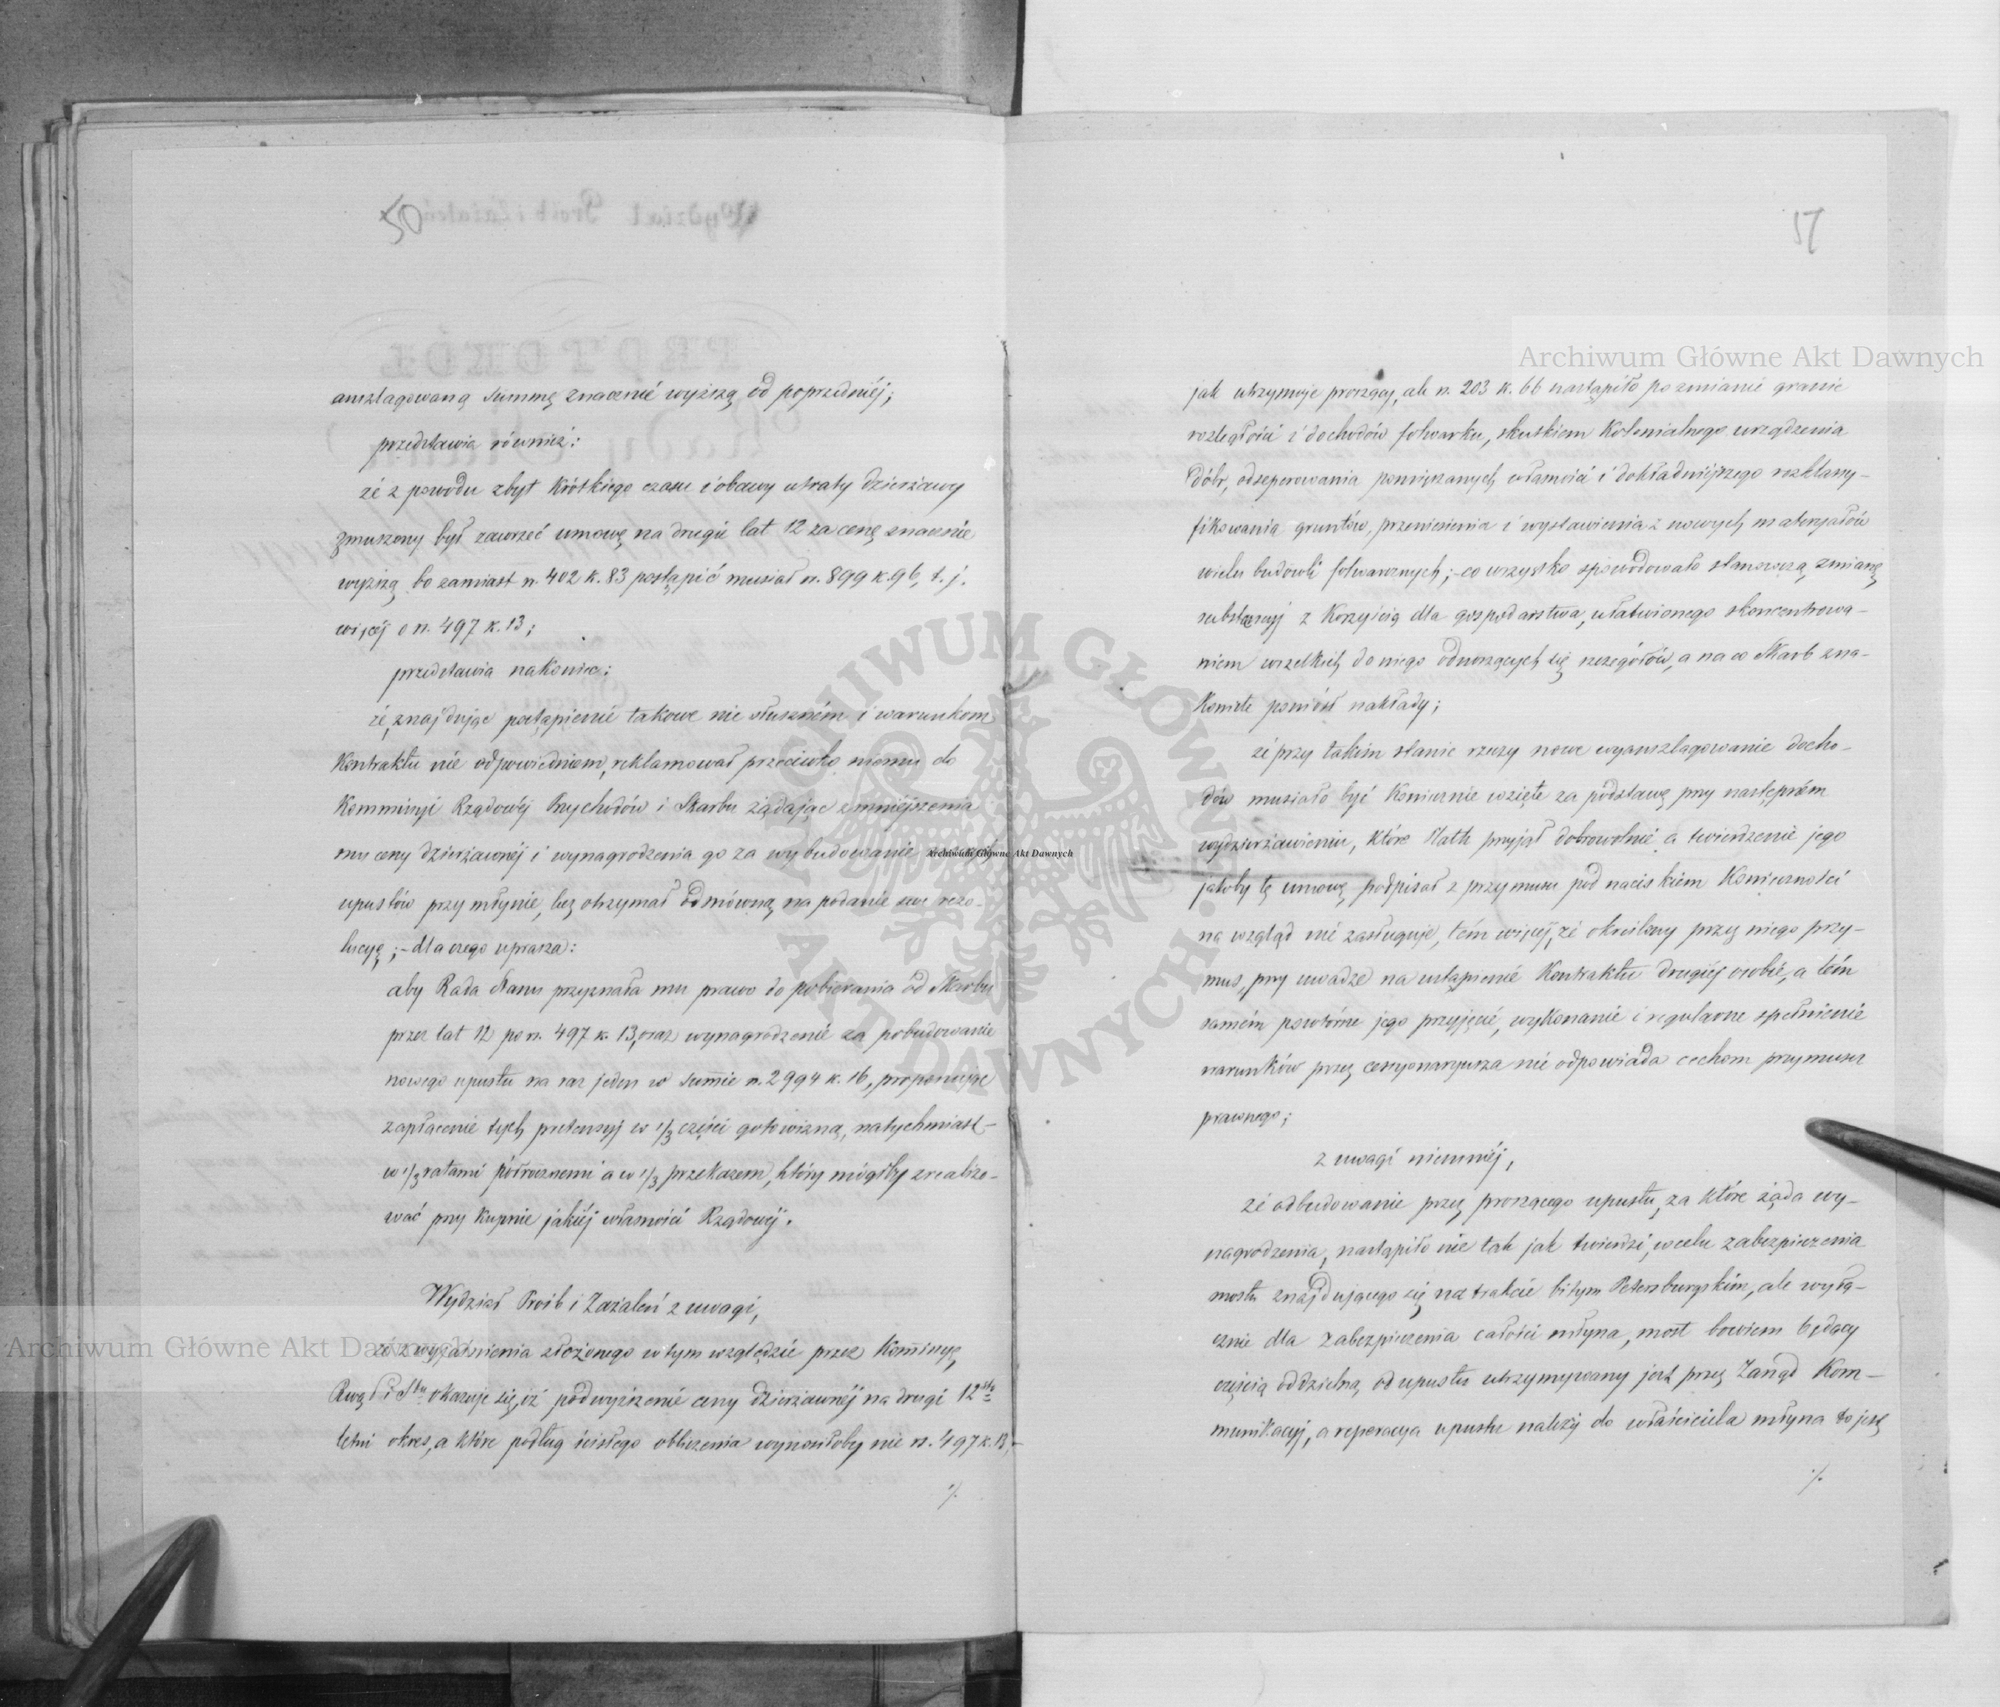 50
anszlagowaną summę znacznie wyższą od poprzedniéj;
przedstawia również:
że z powodu zbyt krótkiego czasu i obawy utraty dzierżawy
zmuszony był zawrzeć umowę na drugie lat 12 za cenę znacznie
wyższą bo zamiast rs. 402 k. 83 postąpić musiał rs. 899 k. 96, t. j.
więcéj o rs. 497 k. 13;
przedstawia nakoniec:
że, znajdując postąpienie takowe nie słuszném i warunkom
Kontraktu nie odpowiedniem, reklamował przeciwko niemu do
Kommissyi Rządowéj Przychodów i Skarbu żądając zmniejszenia
mu ceny dzierżawnéj i wynagrodzenia go za wybudowanie nowych
upustów przy młynie, lecz otrzymał odmówną na podanie swe rezo-
lucyę; - dla czego uprasza:
aby Rada Stanu przyznała mu prawo do pobierania od Skarbu
przez lat 12 po rs. 497 k. 13, oraz wynagrodzenie za pobudowanie
nowego upustu na raz jeden w summie rs. 2994 k. 16, proponując
zapłacenie tych pretensyj w 1/3 części gotowizną, natychmiast -
w 1/3 ratami półrocznemi a w 1/3 przekazem, który mógłby zrealizo-
wać przy kupnie jakiéj własności Rządowéj.
Wydział Prośb i Zażaleń z uwagi,
że z wyjaśnienia złożonego w tym względzie przez Kommissyę
Rząd. P. i Sbu okazuje się, iż podwyższenie ceny dzierżawnéj na drugi 12sto
letni okres, a które podług ścisłego obliczenia wynosiłoby nie rs. 497 k. 13, -
./.
57
jak utrzymuje proszący, ale rs. 203 k. 66 nastąpiło po zmianie granic
rozległości i dochodów folwarku, skutkiem Kolonialnego urządzenia
dóbr, odseperowania pomięszanych własności i dokładniejszego rozklassy-
fikowania gruntów, przeniesienia i wystawienia z nowych materyałów
wielu budowli folwarcznych; - co wszystko spowodowało stanowczą zmianę
substancyj z korzyścią dla gospodarstwa, ułatwionego skoncentrowa-
niem wszelkich do niego odnoszących się szczegółów, a na co Skarb zna-
komite poniósł nakłady;
że przy takim stanie rzeczy nowe wyanszlagowanie docho-
dów musiało być koniecznie wzięte za podstawę przy następném
wydzierżawieniu, które Nath przyjął dobrowolnie a twierdzenie jego
jakoby tę umowę podpisał z przymusu pod naciskiem konieczności
na wzgląd nie zasługuje, tém więcéj, że określony przez niego przy-
mus, przy uwadze na ustąpienie Kontraktu drugiéj osobie, a tém
samém powtórne jego przyjęcie, wykonanie i regularne spełnienie
warunków przez cessyonaryusza nie odpowiada cechom przymusu
prawnego;
z uwagi niemniéj,
że odbudowanie przez proszącego upustu, za które żąda wy-
nagrodzenia, nastąpiło nie tak jak twierdzi, w celu zabezpieczenia
mostu znajdującego się na trakcie bitym Petersburgskim, ale wyłą-
cznie dla zabezpieczenia całości młyna, most bowiem będący
częścią oddzielną od upustu utrzymywany jest przez Zarząd Kom-
munikacyj, a reperacya upustu należy do właściciela młyna to jest
./.
Archiwum Główne Akt Dawnych
Archiwum Główne Akt Dawnych
Archiwum Główne Akt Dawnych
ARCHIWUM GŁÓWNE AKT DAWNYCH